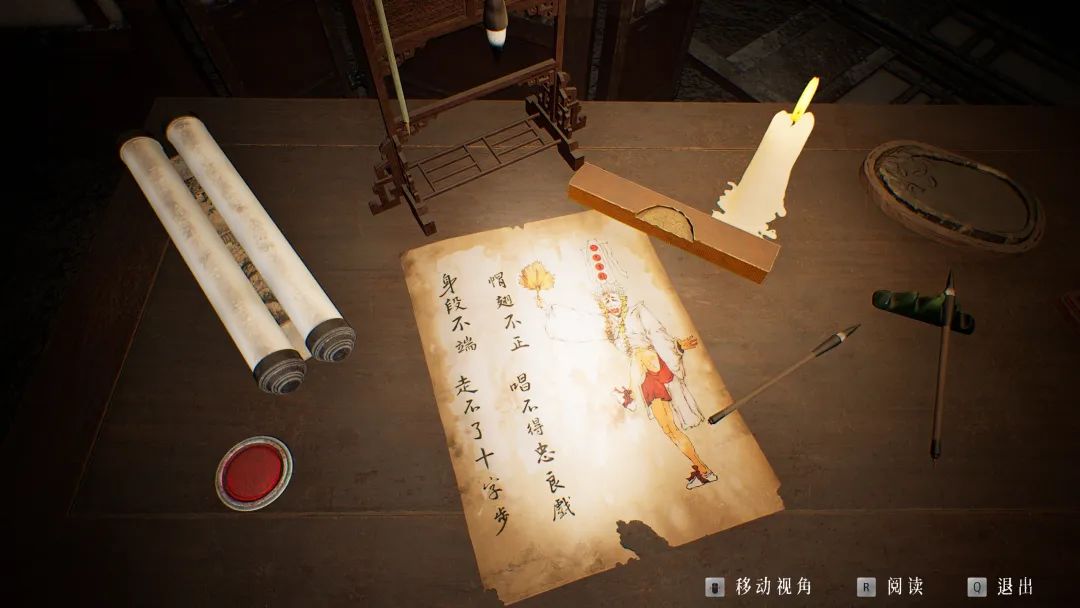 帽翅不正 唱不得忠良戲
身段不端 走不了十字步
移动视角 R 阅读 Q 退出